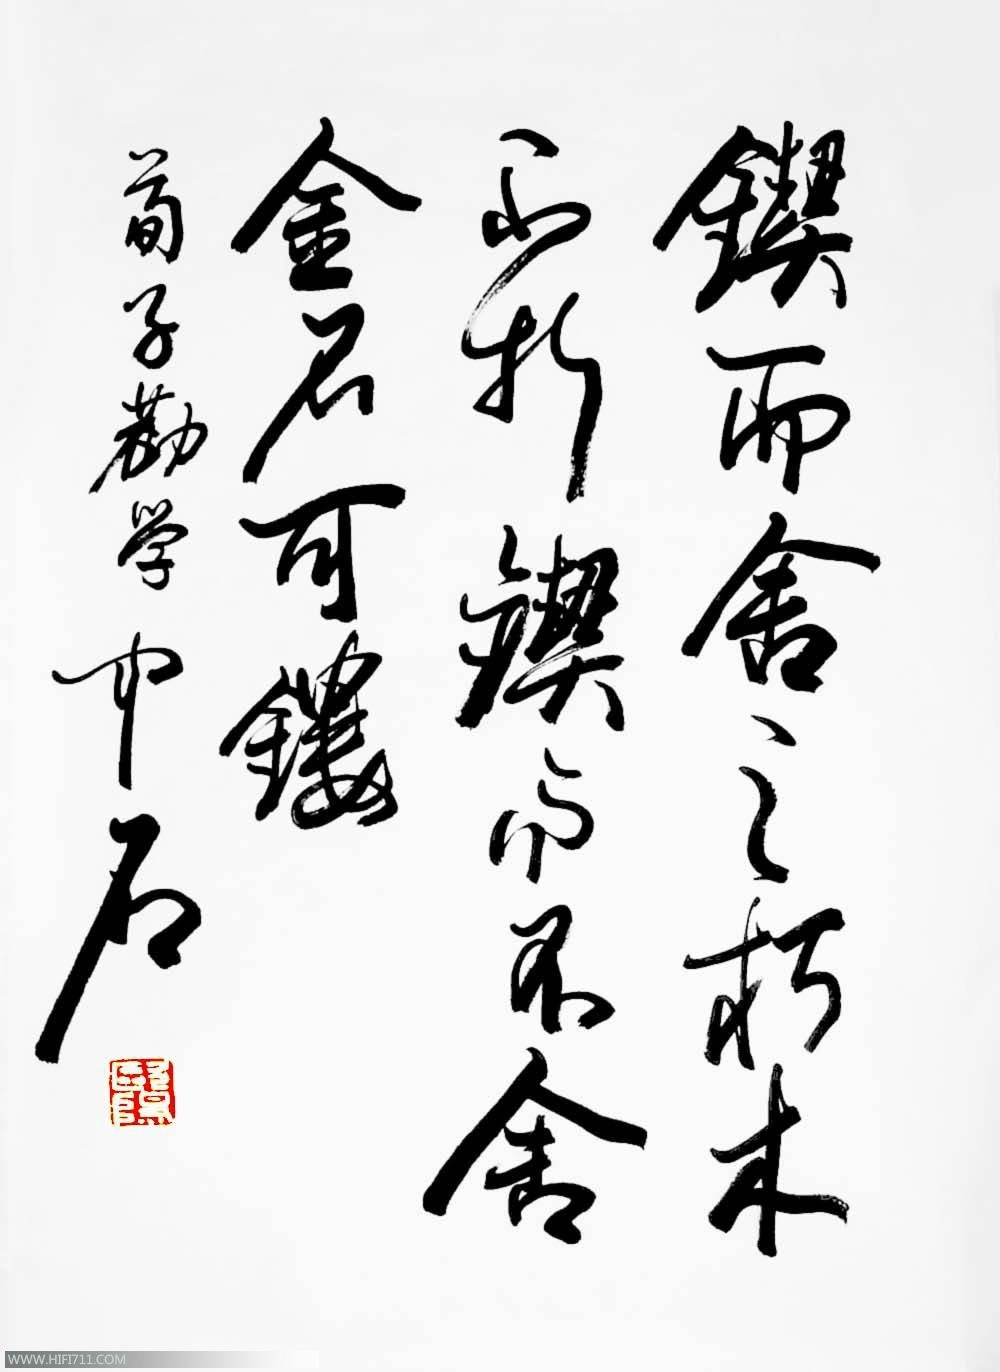 锲而舍之朽木
不折锲而不舍
金石可镂
荀子劝学 中石
WWW.HIFI711.COM